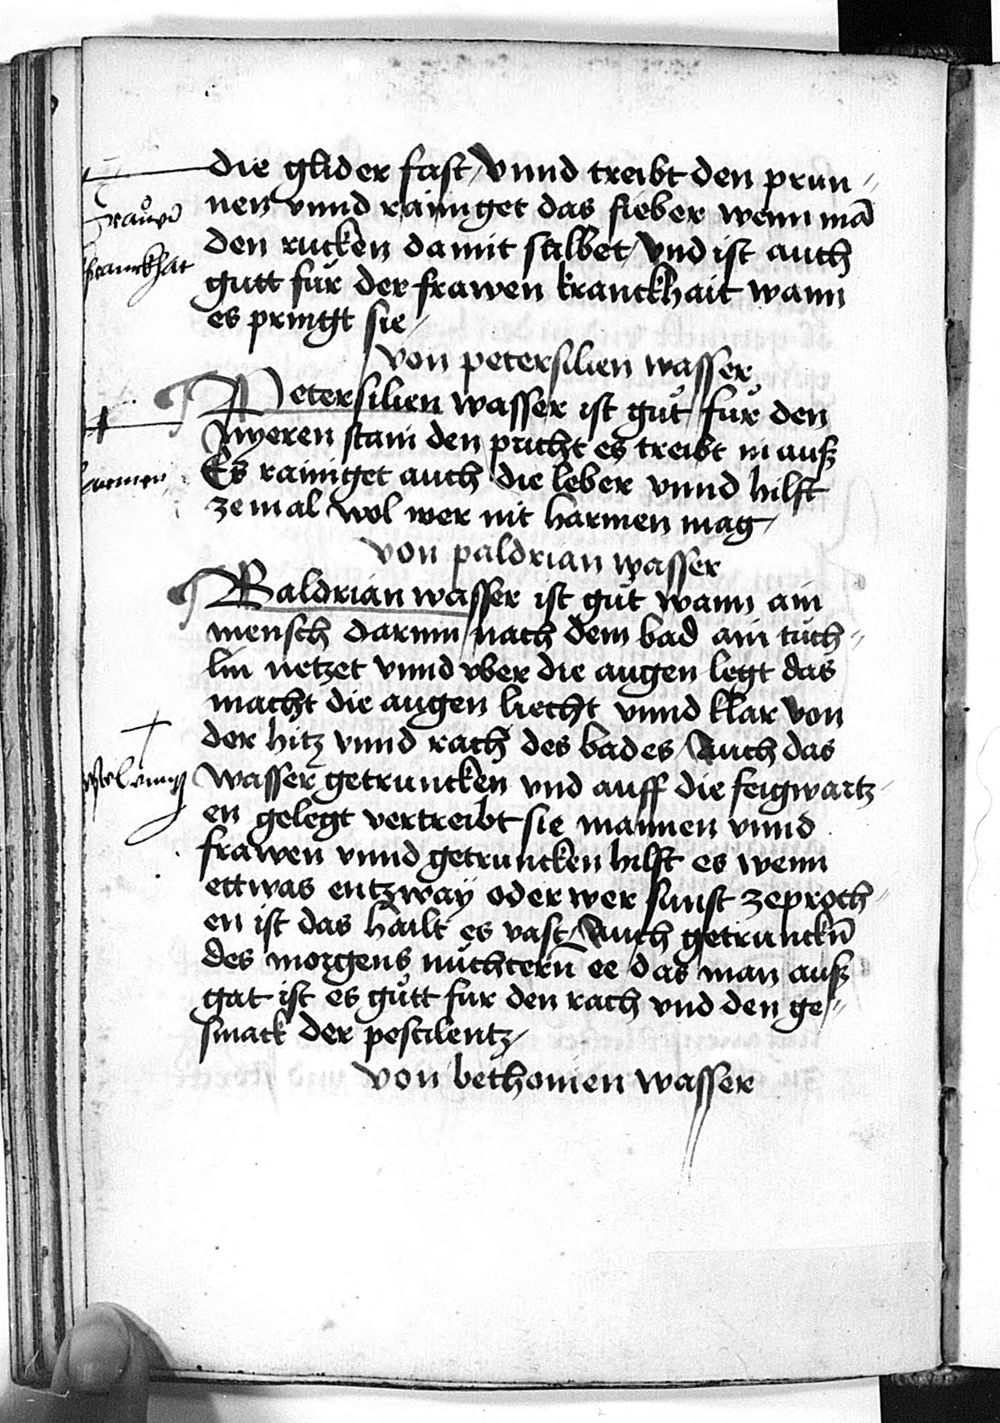 die glider fast / vnnd treibt den prun=
nen vnnd rainiget das fieber wenn mā
den rucken damit salbet / vnd ist auch
gutt für der frawen kranckhait wann
es pringt sie /
von petersilien wasser
Petersilien wasser ist gůt / für den
nyeren stain den pricht es treibt in auß
Es rainiget auch die leber vnnd hilft
ze mal wol wer nit harmen mag /
von paldrian wasser
Baldrian wasser ist gůt wann ain
mensch darinn / nach dem bad ain tüch=
lin netzet vnnd vber die augen legt das
macht die augen liecht vnnd klar von
der hitz vnnd rach des bades / Auch das
wasser getruncken vnd auff die feigwartz=
en gelegt vertreibt sie mannen vnnd
frawen vnnd getruncken hilft es wenn
ettwas entzway oder wer sunst zeproch=
en ist das hailt es vast / Auch getrunckn̄
des morgens nüchtern ee das man auß
gat ist es gůtt für den rach vnd den ge=
smack der pestilentz /
von bethonien wasser
frauen
kranckhat
harmen